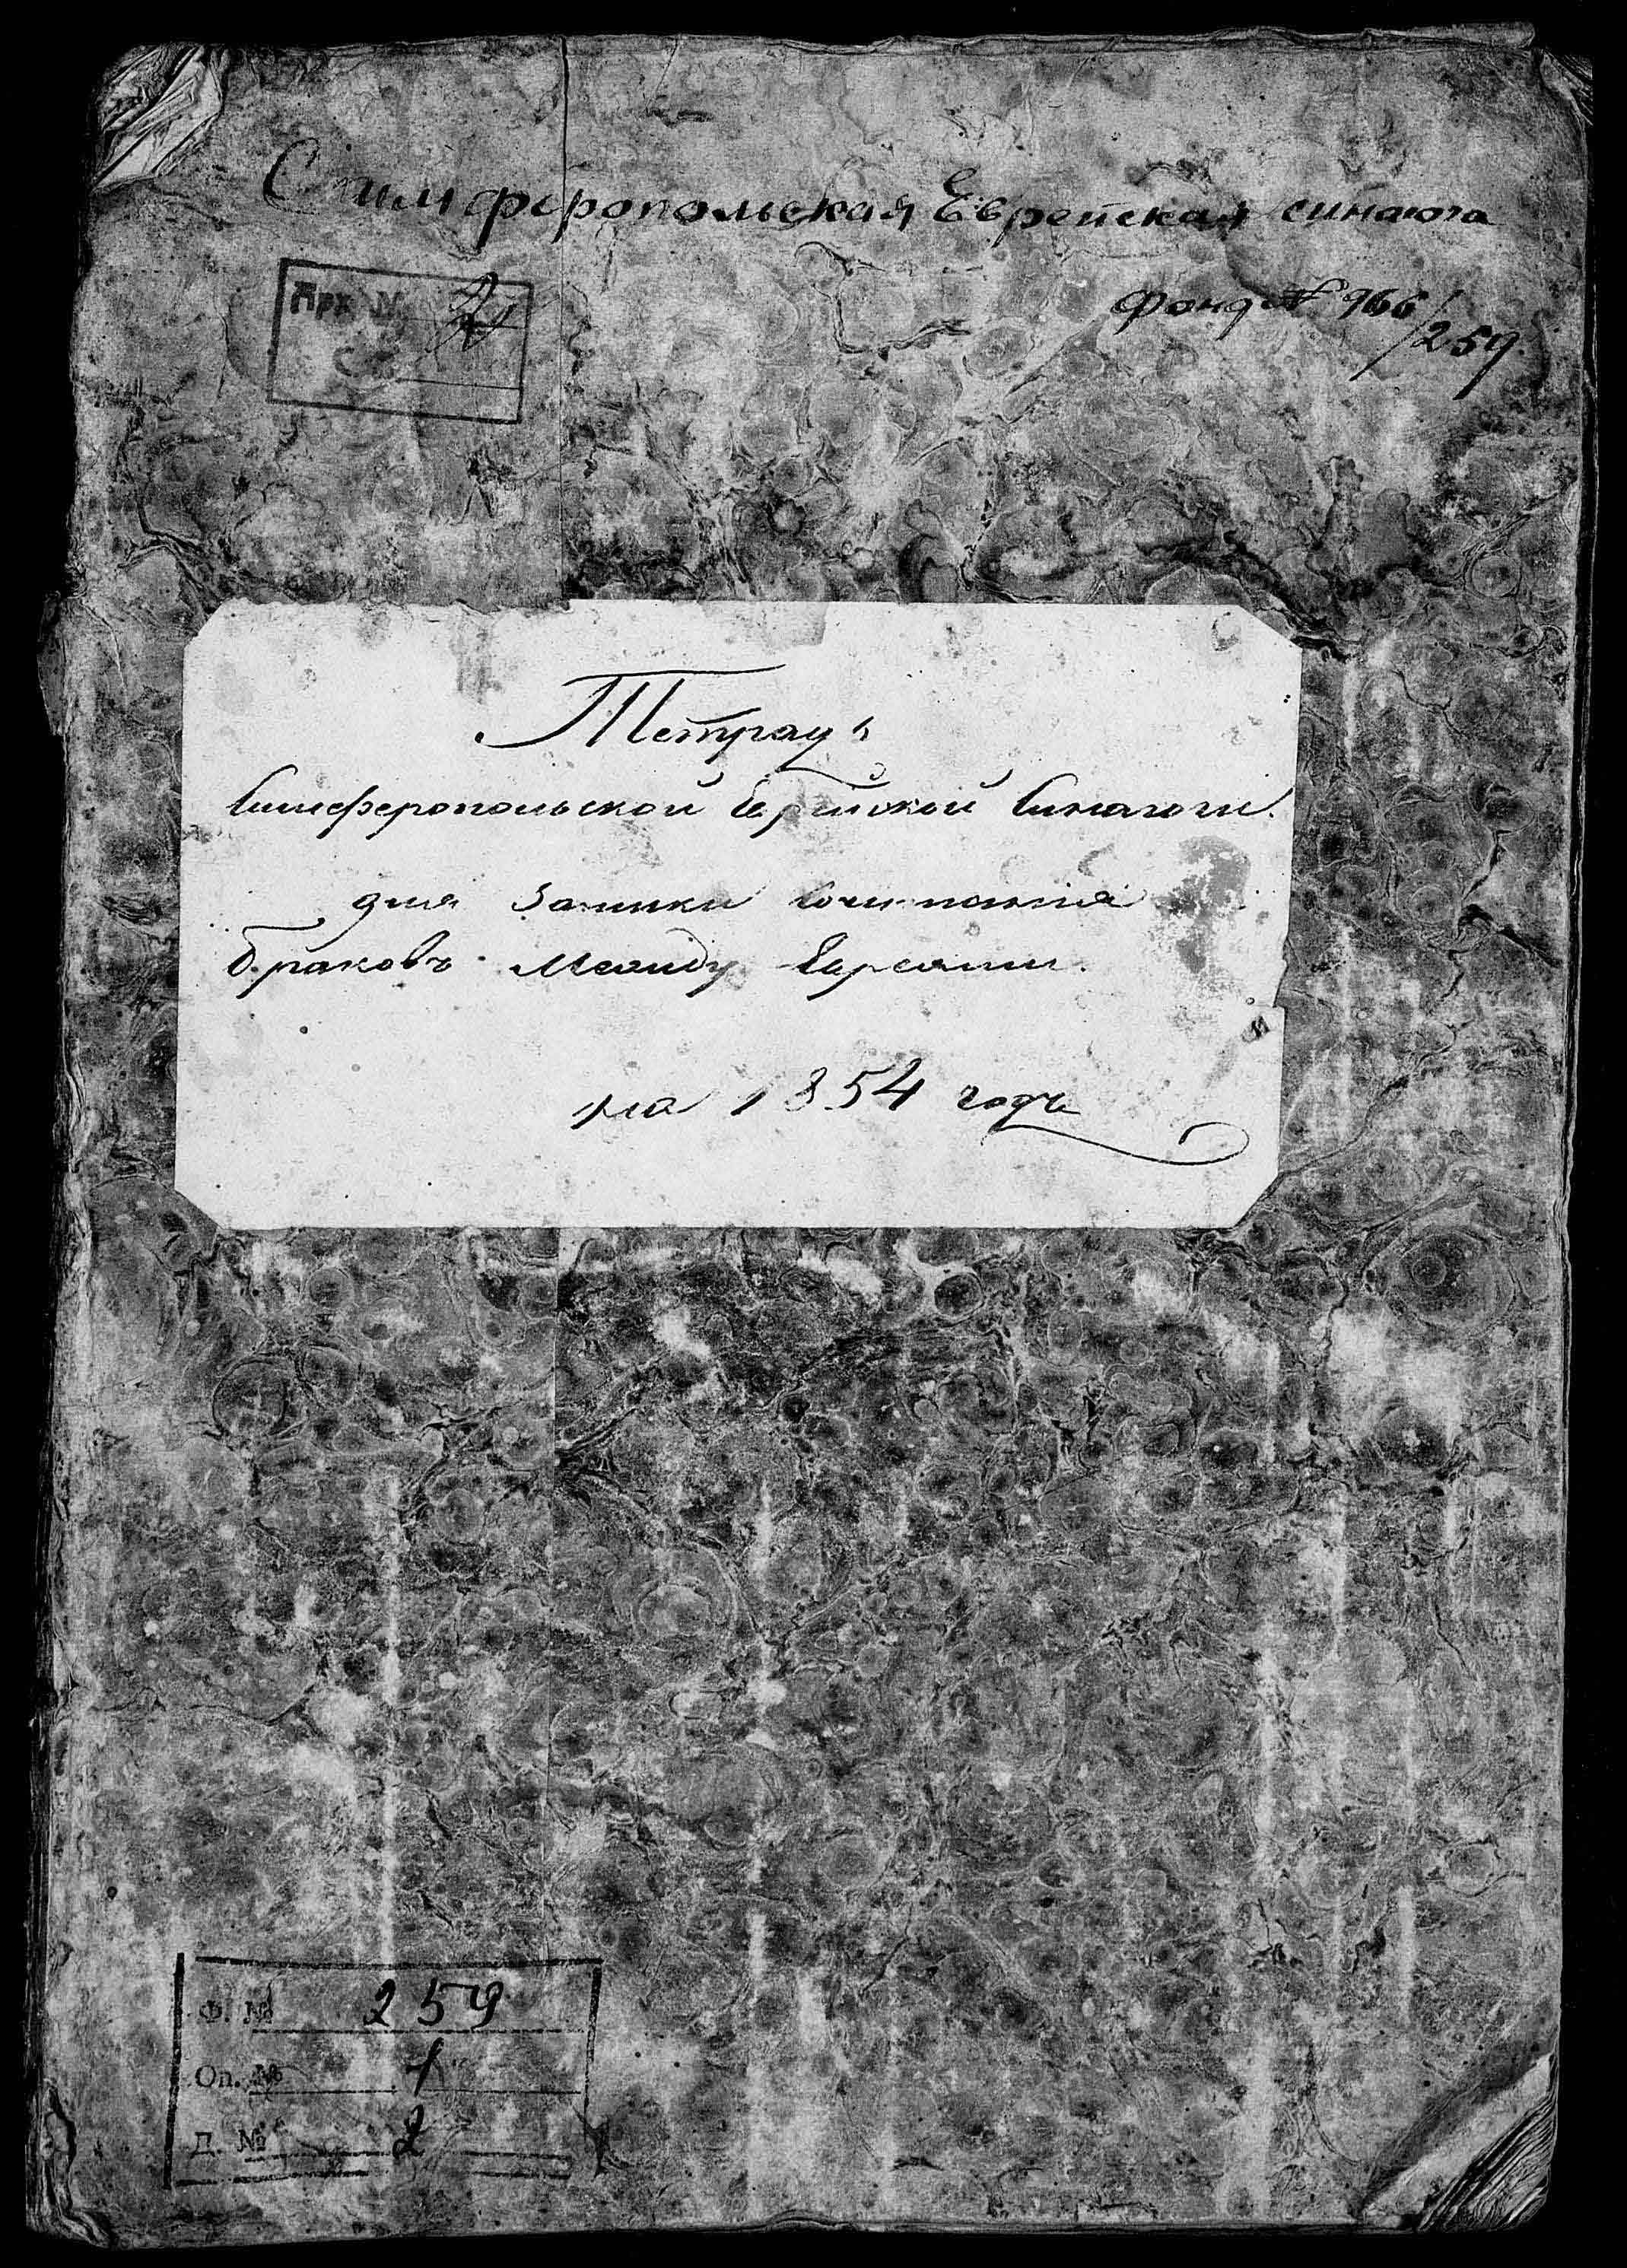 Симферопольская Еврейская синагога
Арх №
Св.
фонд № 966/259.
Тетрадь
Симферопольской Еврейской Синагоги.
для записки сочитания
браковъ между Евреями.
на 1854 годъ
Ф. № 259
Оп. № 1
Д. № 2